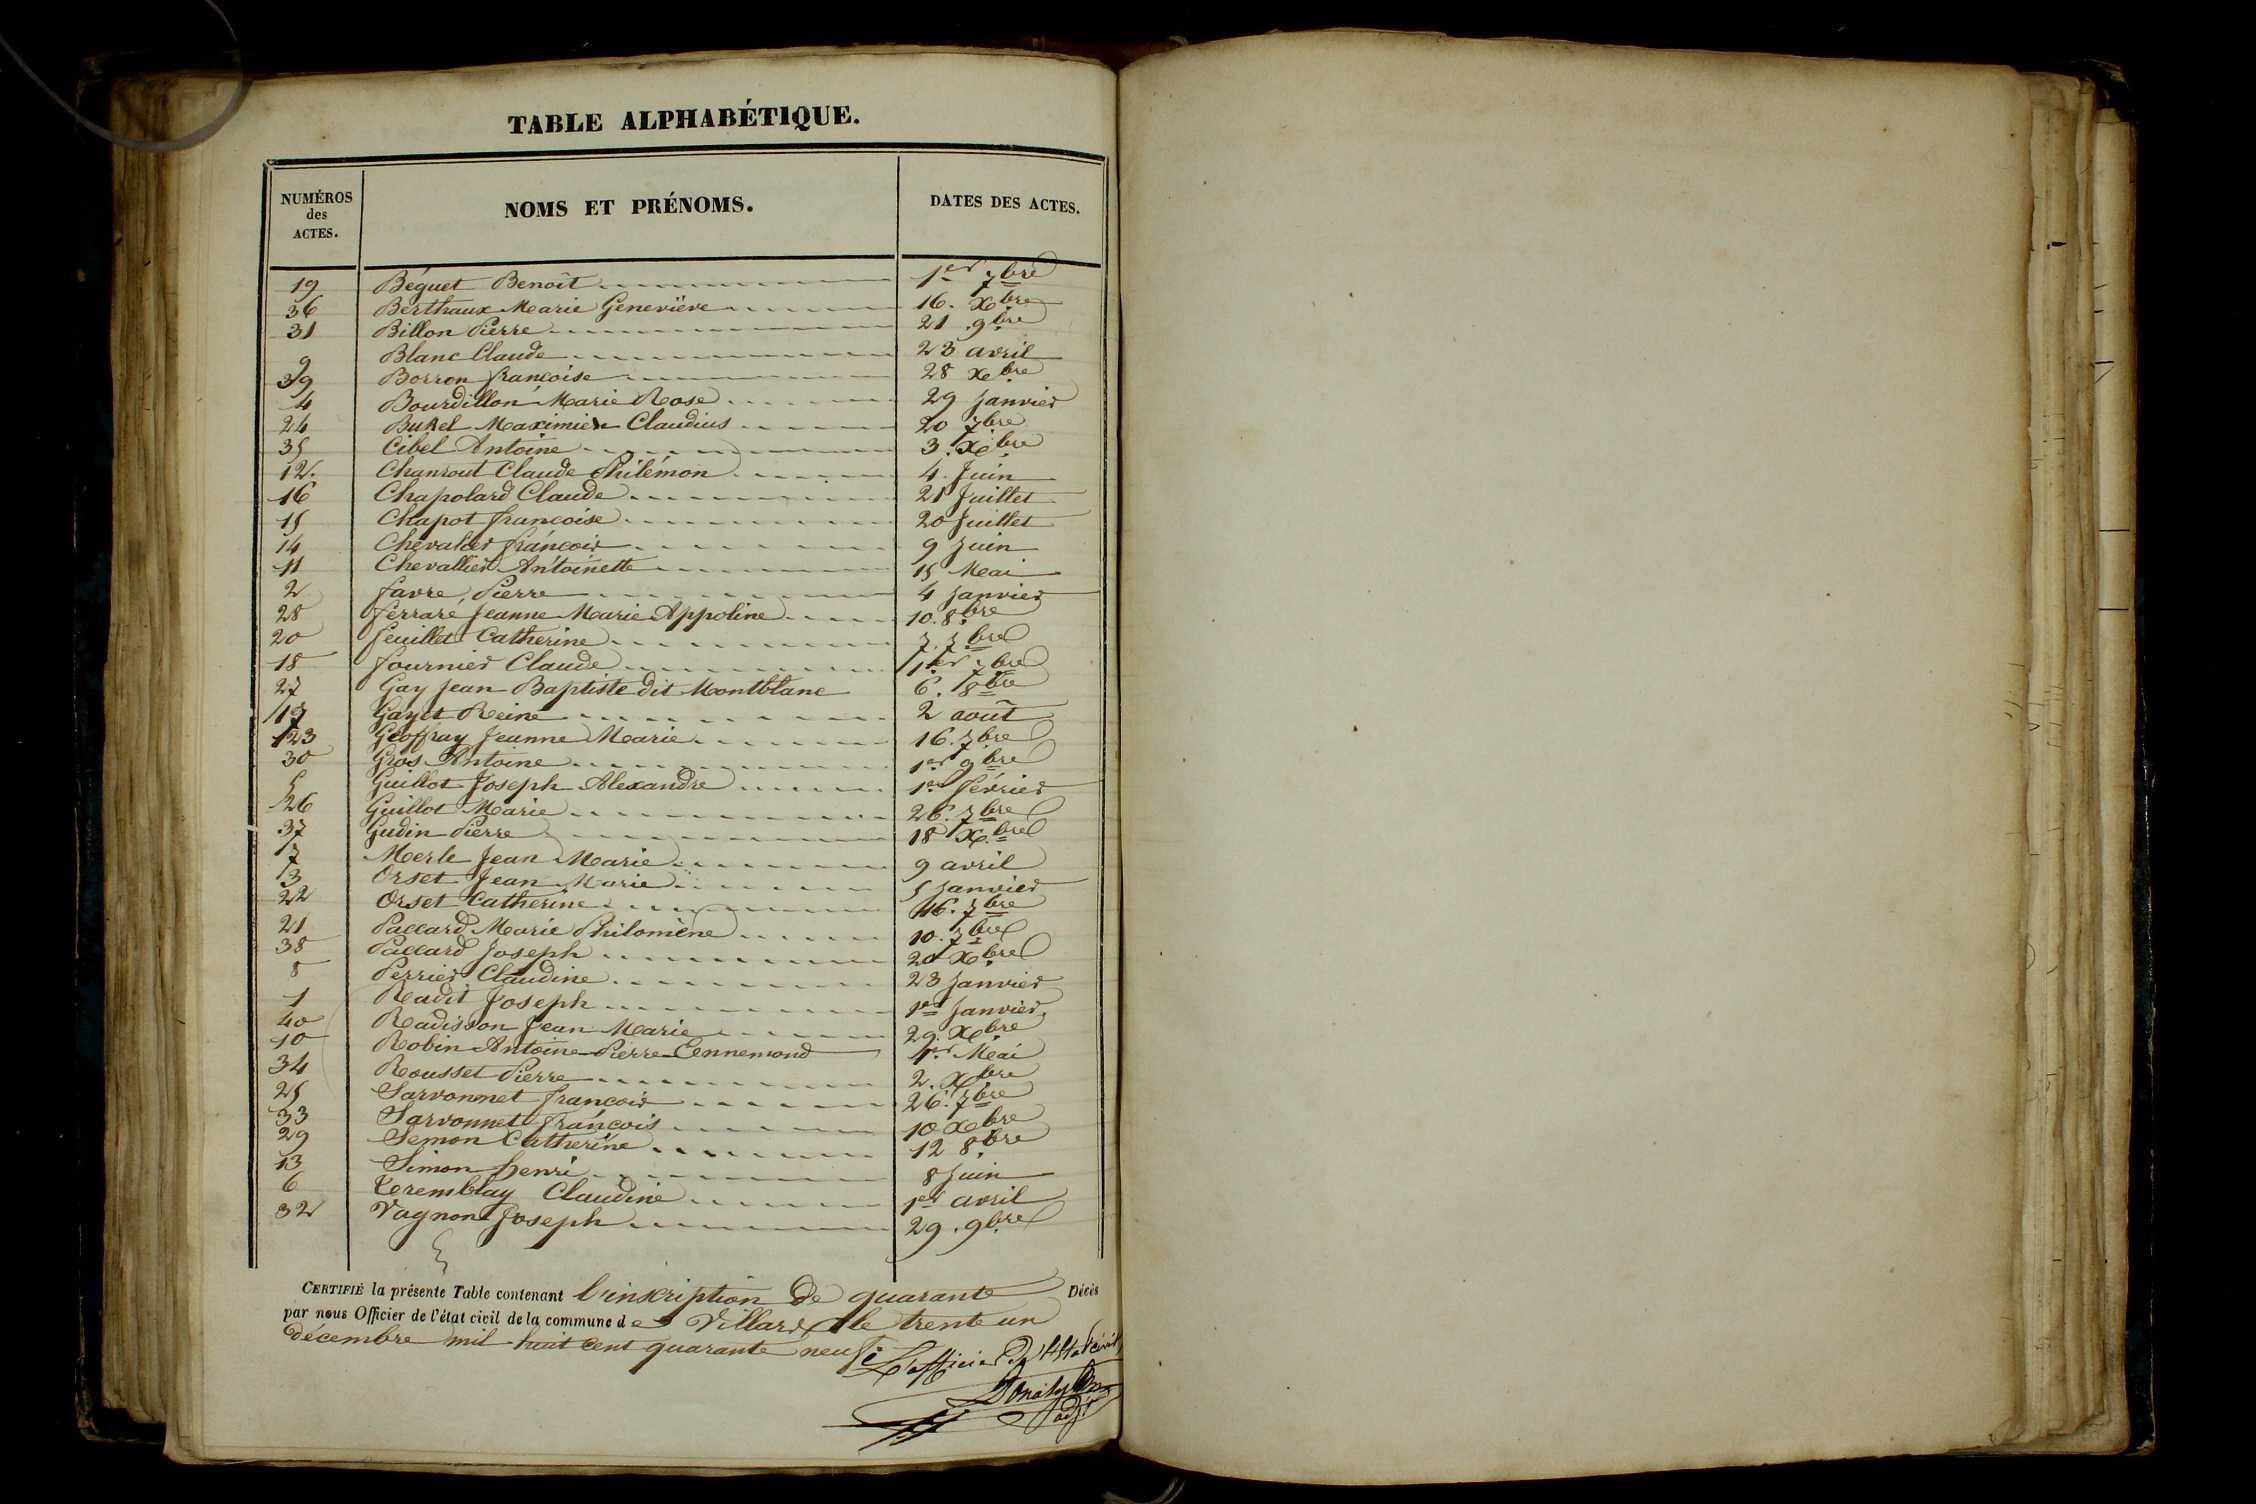 TABLE ALPHABÉTIQUE.
NUMÉROS des ACTES. NOMS ET PRÉNOMS. DATES DES ACTES.
19 Béguet Benoît 1er 7bre
36 Berthaux Marie Genevière 16. Xbre
31 Billon Pierre 21 9bre
9 Blanc Claude 23 avril
39 Borron françoise 28 Xbre
4 Bourdillon Marie Rose 29 Janvier
24 Claudius 20 7bre
35 Cibel Antoine 3. Xbre
12. Claude Philémon 4. Juin
16 Chapolard Claude 21 Juillet
15 Chapot françoise 20 Juillet
14 Chevalier françois 9 Juin
11 Chevallier Antoinette 15 Mai
2 favre Pierre 4 Janvier
28 ferraré Jeanne Marie Appoline 10. 8bre
20 feuillet Catherine 7. 7bre
18 fournier Claude 1er 7bre
27 Gay Jean Baptiste dit Montblanc 6. 8bre
17 Gayet Reine 2 août
23 Geoffray Jeanne Marie 16. 7bre
30 Gros Antoine 1er 9bre
5 Guillot Joseph Alexandre 1er février
26 Guillot Marie 26. 7bre
37 Gudin Pierre 18 Xbre
7 Merle Jean Marie 9 avril
3 Orset Jean Marie 5 Janvier
22 Orset Catherine 16. 7bre
21 Paccard Marie Philomène 10. 7bre
38 Paccard Joseph 20 Xbre
8 Perrier Claudine 23 Janvier
1 Radit Joseph 1er Janvier
40 Radisson Jean Marie 29. Xbre
10 Robin Antoine Pierre Ennemond 1er Mai
34 Rousset Pierre 2. Xbre
25 Sarvonnet françois 26. 7bre
33 Sarvonnet françois 10 Xbre
29 Semon Catherine 12 8bre
13 Simon henri 8 Juin
6 Teremblay Claudine 1er avril
32 Vagnon Joseph 29. 9bre
CERTIFIÉ la présente Table contenant l'inscription de quarante Décès
par nous Officier de l'état civil de la commune de Villars le trente un
décembre mil huit cent quarante neuf
L'officier de l'état civil
adjt